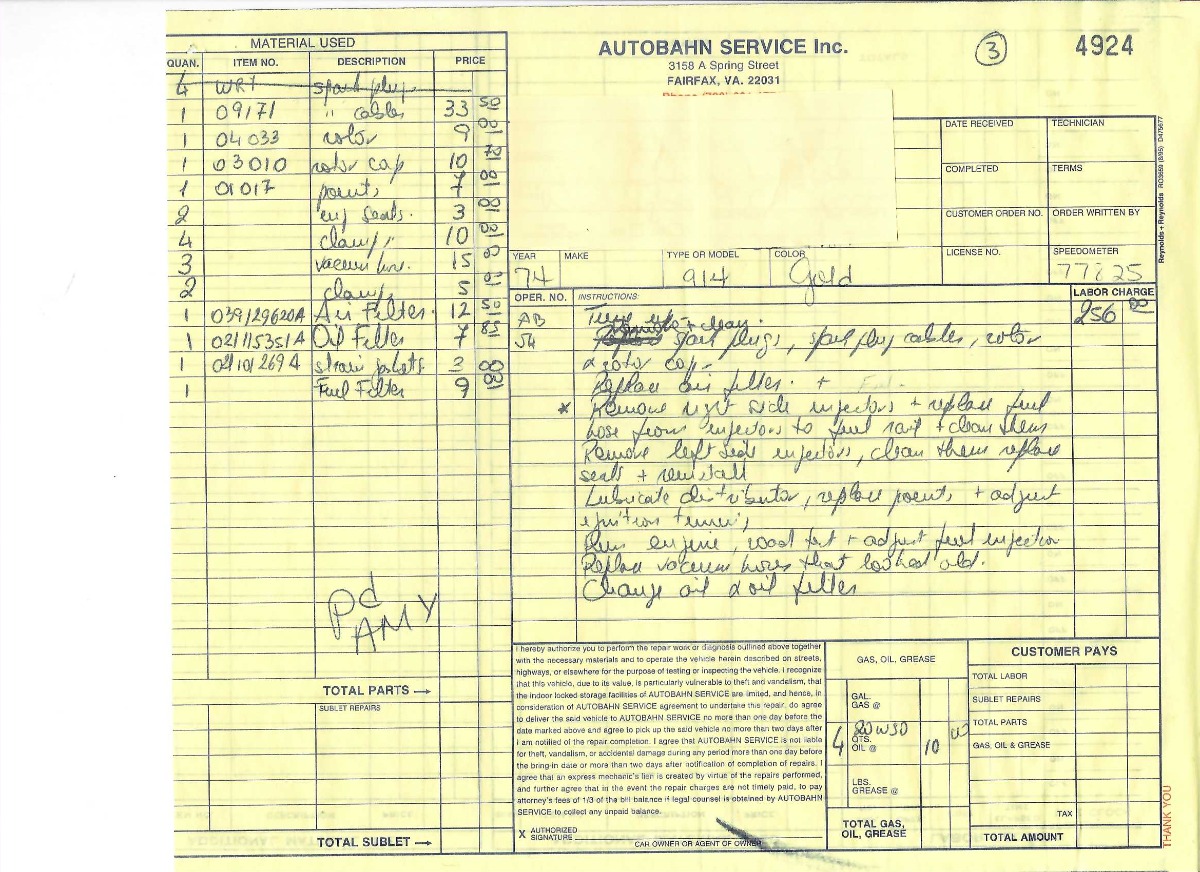 MATERIAL USED
QUAN. ITEM NO. DESCRIPTION PRICE
4 WR7 spark plugs
1 09171 " cables 33 50
1 04033 rotor 9
1 03010 rotor cap 10
1 01017 points 7
2 inj seals. 3
4 clamp " 10
3 vacuum hose. 15
2 clamp 5
1 039129620A Air Filter. 12
1 021115351A Oil Filter 7 85
1 3
1 Fuel Filter 9
Pd
AMY
TOTAL PARTS
SUBLET REPAIRS
TOTAL SUBLET
AUTOBAHN SERVICE Inc.
3158 A Spring Street
FAIRFAX, VA. 22031
3
4924
DATE RECEIVED TECHNICIAN
COMPLETED TERMS
CUSTOMER ORDER NO. ORDER WRITTEN BY
LICENSE NO. SPEEDOMETER
77225
YEAR MAKE TYPE OR MODEL COLOR
74 914 Gold
OPER. NO. INSTRUCTIONS: LABOR CHARGE
AB Tune up 256 00
54 + clean spark plugs, spark plug cables, rotor
& rotor cap.
Replace air filter. +
* Remove right side injectors + replace fuel
hose from injectors to fuel rail + clean them
Remove left side injectors, clean them replace
seals + reinstall
Lubricate distributor, replace points + adjust
ignition timing
Run engine, road test + adjust fuel injection
Replace vacuum hoses that looked old.
Change oil & oil filter
I hereby authorize you to perform the repair work or diagnosis outlined above together
with the necessary materials and to operate the vehicle herein described on streets,
highways, or elsewhere for the purpose of testing or inspecting the vehicle. I recognize
that this vehicle, due to its value, is particularly vulnerable to theft and vandalism, that
the indoor locked storage facilities of AUTOBAHN SERVICE are limited, and hence, in
consideration of AUTOBAHN SERVICE agreement to undertake this repair, do agree
to deliver the said vehicle to AUTOBAHN SERVICE no more than one day before the
date marked above and agree to pick up the said vehicle no more than two days after
I am notified of the repair completion. I agree that AUTOBAHN SERVICE is not liable
for theft, vandalism, or accidental damage during any period more than one day before
the bring-in date or more than two days after notification of completion of repairs. I
agree that an express mechanic's lien is created by virtue of the repairs performed,
and further agree that in the event the repair charges are not timely paid, to pay
attorney's fees of 1/3 of the bill balance if legal counsel is obtained by AUTOBAHN
SERVICE to collect any unpaid balance.
X AUTHORIZED SIGNATURE
CAR OWNER OR AGENT OF OWNER
GAS, OIL, GREASE
GAL. GAS @
4 QTS. OIL @ 20W50 10
LBS. GREASE @
TOTAL GAS, OIL, GREASE
CUSTOMER PAYS
TOTAL LABOR
SUBLET REPAIRS
TOTAL PARTS
GAS, OIL & GREASE
TAX
TOTAL AMOUNT
THANK YOU